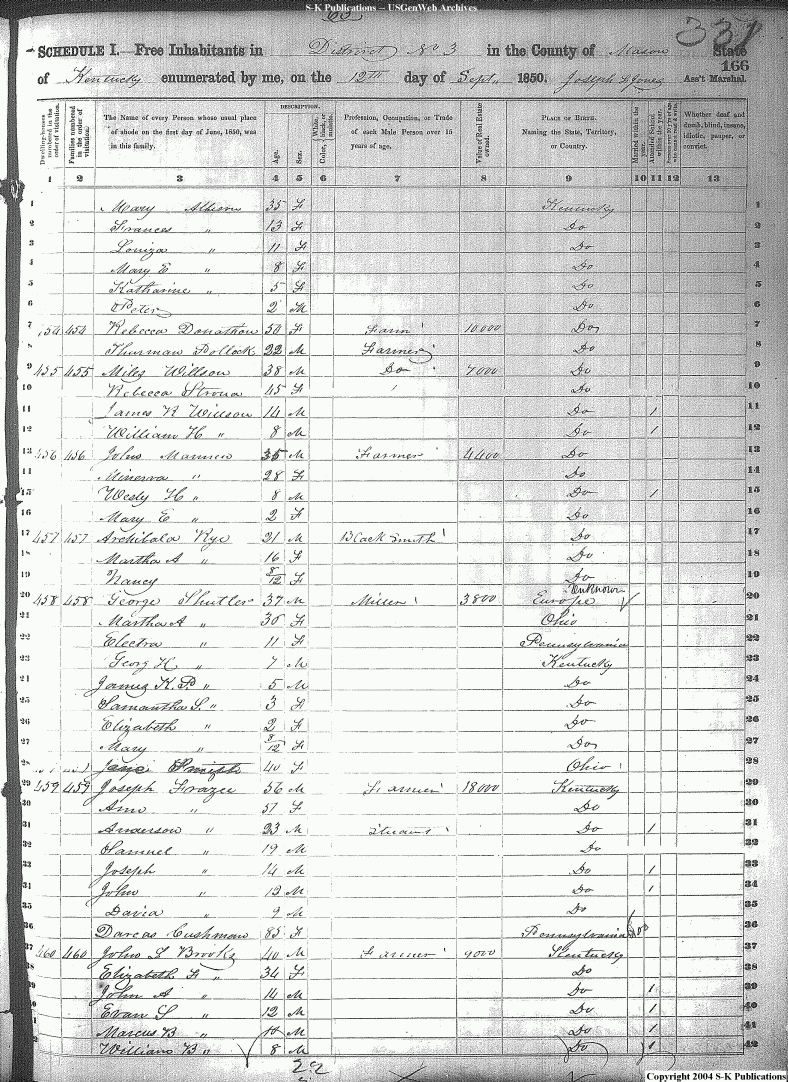 S-K Publications -- USGenWeb Archives
66
331
SCHEDULE I. Free Inhabitants in District No 3 in the County of Mason State
166
of Kentucky enumerated by me, on the 12th day of Sept. 1850. Joseph Jones Ass't Marshal.
Dwelling-houses numbered in the order of visitation.
Families numbered in the order of visitation.
The Name of every Person whose usual place of abode on the first day of June, 1850, was in this family.
DESCRIPTION.
Age.
Sex.
White, black, or mulatto.
Color,
Profession, Occupation, or Trade of each Male Person over 15 years of age.
Value of Real Estate owned.
PLACE OF BIRTH.
Naming the State, Territory, or Country.
Married within the year.
Attended School within the year.
Whether deaf and dumb, blind, insane, idiotic, pauper, or convict.
1 2 3 4 5 6 7 8 9 10 11 12 13
1 Mary Allison 35 F Kentucky 1
2 Frances " 13 F Do 2
3 Louiza " 11 F Do 3
4 Mary E " 8 F Do 4
5 Katharine " 5 F Do 5
6 Peter 2 M Do 6
7 454 454 Rebecca Donathon 50 F Farm 10000 Do 7
8 Thurman Pollock 22 M Farmer Do 8
9 455 455 Miles Willson 38 M Do 7000 Do 9
10 Rebecca 45 F Do 10
11 James K Willson 14 M Do 1 11
12 William H " 8 M Do 1 12
13 456 456 John 35 M Farmer 4400 Do 13
14 Minerva " 28 F Do 14
15 Wesly H " 8 M Do 1 15
16 Mary E " 2 F Do 16
17 457 457 Archibald Rye 21 M Black Smith Do 17
18 Martha A " 16 F Do 18
19 Nancy 8/12 F Do 19
20 458 458 George Shutler 37 M Miller 3800 Unknown Europe 20
21 Martha A " 36 F Ohio 21
22 Electra " 11 F Pennsylvania 22
23 Georg H " 7 M Kentucky 23
24 James K. P. " 5 M Do 24
25 Samantha S. " 3 F Do 25
26 Elizabeth " 2 F Do 26
27 Mary " 8/12 F Do 27
28 Jane Smith 40 F Ohio 28
29 459 459 Joseph Frazee 56 M Farmer 18000 Kentucky 29
30 Ann " 57 F Do 30
31 Anderson " 23 M Do 1 31
32 Samuel " 19 M Do 32
33 Joseph " 14 M Do 1 33
34 John " 12 M Do 1 34
35 David " 9 M Do 35
36 Darcas Cushman 85 F Pennsylvania 36
37 460 460 John L Brooks 40 M Farmer 9000 Kentucky 37
38 Elizabeth F " 34 F Do 38
39 John A " 14 M Do 1 39
40 Evan S " 12 M Do 1 40
41 Marcus B " M Do 1 41
42 William B " 8 M Do 1 42
22
Copyright 2004 S-K Publications